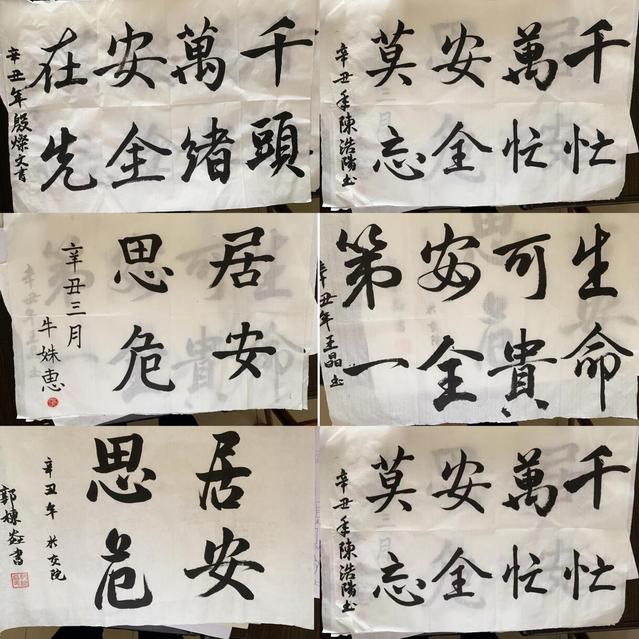 千頭
萬緒
安全
在先
辛丑年殷燦文書
千忙
萬忙
安全
莫忘
辛丑年陳浩陽书
居安
思危
辛丑三月
牛姝惠
生命
可貴
安全
第一
辛丑年王晶书
居安
思危
辛丑年 於女院
郭
書
千忙
萬忙
安全
莫忘
辛丑年陳浩陽书